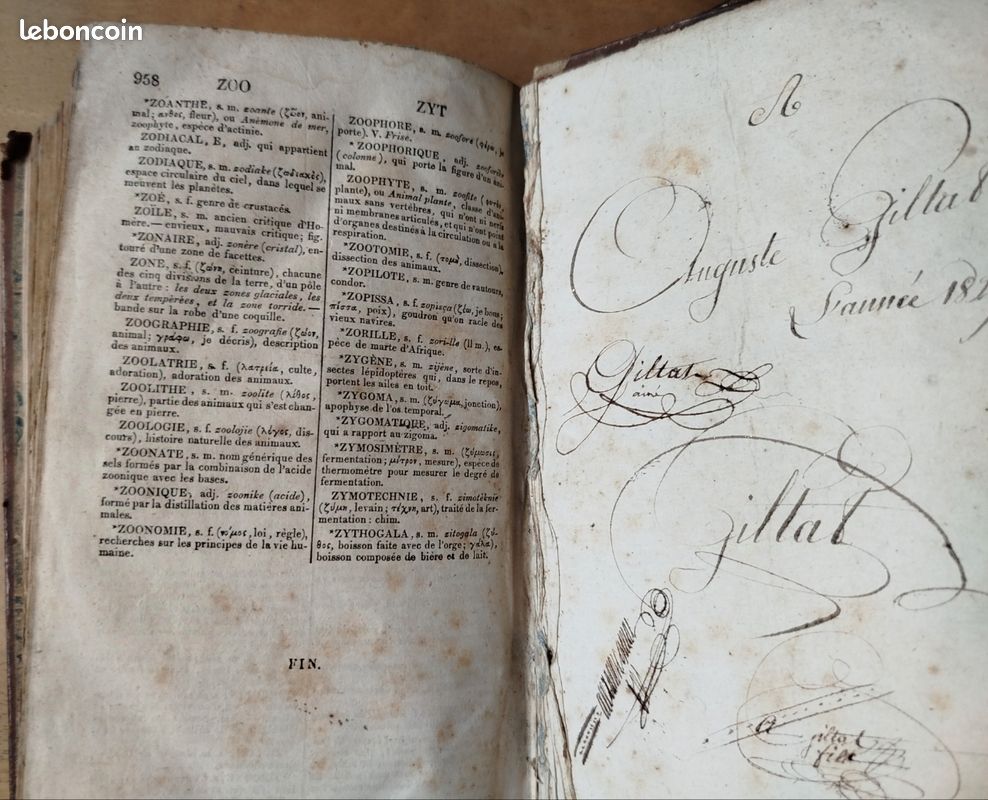 leboncoin
958 ZOO ZYT
*ZOANTHE, s. m. zoante (ζῶον, ani-
mal; ανθος, fleur), ou Anémone de mer,
zoophyte, espèce d'actinie.
ZODIACAL, E, adj. qui appartient
au zodiaque.
ZODIAQUE, s. m. zodiake (ζωδιακὸς),
espace circulaire du ciel, dans lequel se
meuvent les planètes.
*ZOÉ, s. f. genre de crustacés.
ZOÏLE, s. m. ancien critique d'Ho-
mère.— envieux, mauvais critique; fig.
*ZONAIRE, adj. zonère (cristal), en-
touré d'une zone de facettes.
ZONE, s. f. (ζώνη, ceinture), chacune
des cinq divisions de la terre, d'un pôle
à l'autre : les deux zones glaciales, les
deux tempérées, et la zone torride. —
bande sur la robe d'une coquille.
ZOOGRAPHIE, s. f. zoografie (ζῶον,
animal; γράφω, je décris), description
des animaux.
ZOOLATRIE, s. f. (λατρεία, culte,
adoration), adoration des animaux.
ZOOLITHE, s. m. zoolite (λίθος,
pierre), partie des animaux qui s'est chan-
gée en pierre.
ZOOLOGIE, s. f. zoolojie (λόγος, dis-
cours), histoire naturelle des animaux.
*ZOONATE, s. m. nom générique des
sels formés par la combinaison de l'acide
zoonique avec les bases.
*ZOONIQUE, adj. zoonike (acide),
formé par la distillation des matières ani-
males.
*ZOONOMIE, s. f. (νόμος, loi, règle),
recherches sur les principes de la vie hu-
maine.
ZOOPHORE, s. m. zoofore (φέρω, je
porte). V. Frise.
*ZOOPHORIQUE, adj. zooforike
(colonne), qui porte la figure d'un ani-
mal.
ZOOPHYTE, s. m. zoofite (φυτὸν,
plante), ou Animal plante, classe d'ani-
maux sans vertèbres, qui n'ont ni nerfs
ni membranes articulés, et qui n'ont point
d'organes destinés à la circulation ou à la
respiration.
*ZOOTOMIE, s. f. (τομὴ, dissection),
dissection des animaux.
*ZOPILOTE, s. m. genre de vautours,
condor.
*ZOPISSA, s. f. zopisça (ζέω, je bous;
πίσσα, poix), goudron qu'on racle des
vieux navires.
*ZORILLE, s. f. zori-lle (ll m.), es-
pèce de marte d'Afrique.
*ZYGÈNE, s. m. zijène, sorte d'in-
sectes lépidoptères qui, dans le repos,
portent les ailes en toit.
*ZYGOMA, s. m. (ζύγωμα, jonction),
apophyse de l'os temporal.
*ZYGOMATIQUE, adj. zigomatike,
qui a rapport au zigoma.
*ZYMOSIMÈTRE, s. m. (ζύμωσις,
fermentation; μέτρον, mesure), espèce de
thermomètre pour mesurer le degré de
fermentation.
ZYMOTECHNIE, s. f. zimotèknie
(ζύμη, levain; τέχνη, art), traité de la fer-
mentation : chim.
*ZYTHOGALA, s. m. zitogala (ζύ-
θος, boisson faite avec de l'orge; γάλα),
boisson composée de bière et de lait.
FIN.
A
Auguste Giltat
L'année 18
Giltat
ainé
Giltat
A
giltat